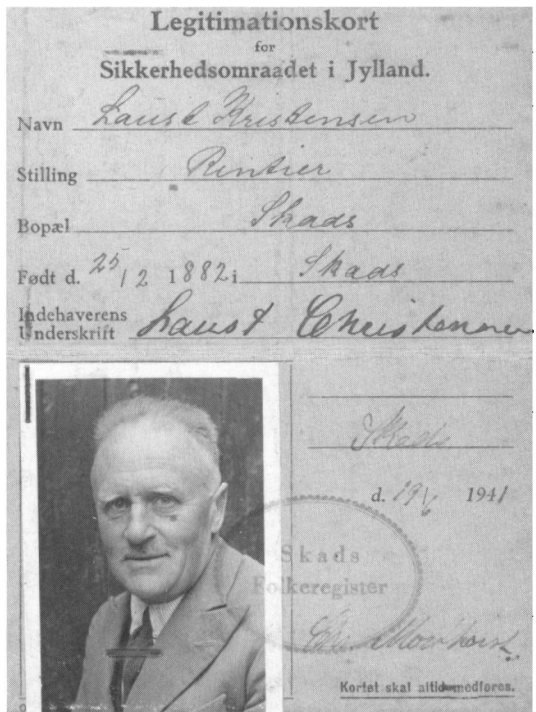 Legitimationskort
for
Sikkerhedsomraadet i Jylland.
Navn Laust Kristensen
Stilling Rentier
Bopæl Skads
Født d. 25/2 1882 i Skads
Indehaverens
Underskrift Laust Christensen
Skads
d. 19/6 1941
Skads
Folkeregister
Kortet skal altid medføres.